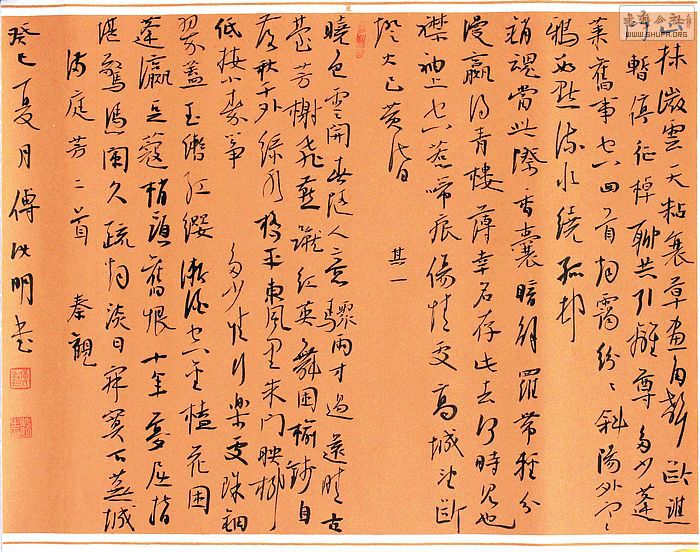 抹微雲天粘衰草畫角聲斷譙
門暫停征棹聊共引離尊多少蓬
萊舊事空回首烟靄紛紛斜陽外寒
鴉萬點流水繞孤村
銷魂當此際香囊暗解羅帶輕分
漫贏得青樓薄幸名存此去何時見也
襟袖上空惹啼痕傷情處高城望斷
燈火已黃昏
其一
曉色雲開春隨人意驟雨才過還晴古
臺芳榭飛燕蹴紅英舞困榆錢自
落秋千外綠水橋平東風里朱門映柳
低按小秦箏
多少情行樂處珠鈿
翠蓋玉轡紅纓漸酒空金榼花困
蓬瀛豆蔻梢頭舊恨十年夢屈指
堪驚憑闌久疏烟淡日寂寞下蕪城
滿庭芳二首
秦觀
癸巳夏月傅以明書
WWW.SHUFA.ORG